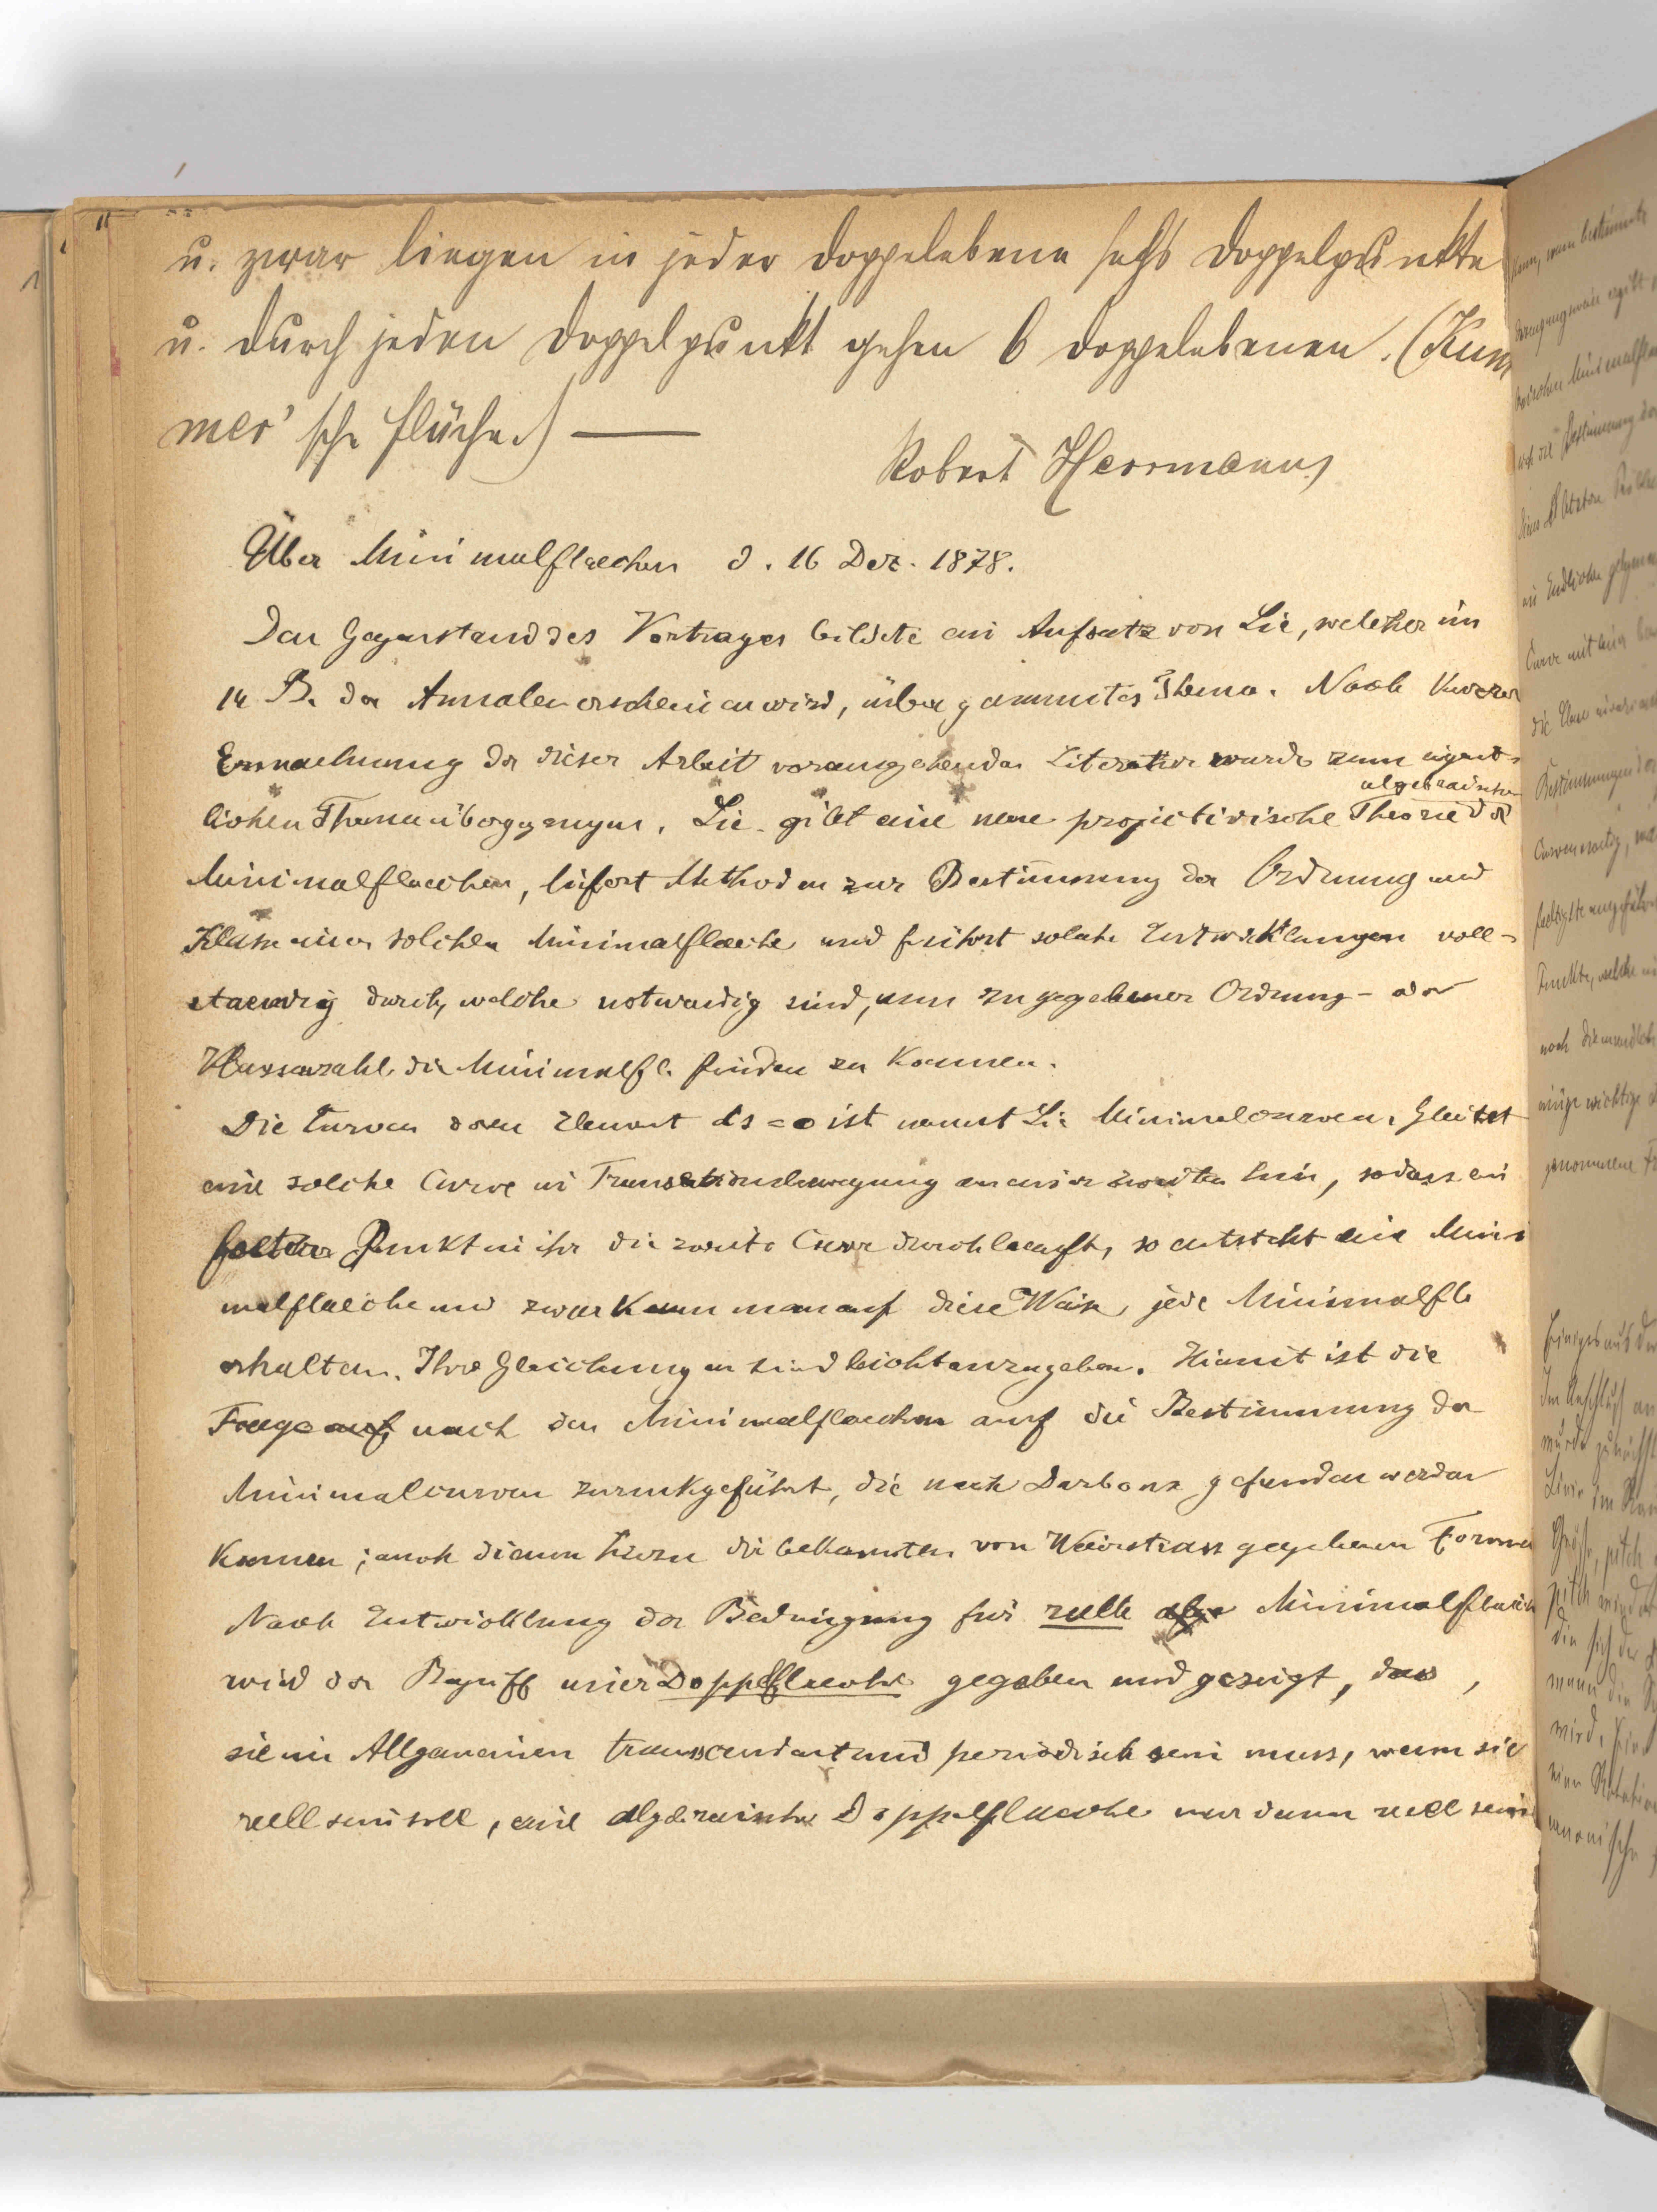 u. zwar liegen in jeder Doppelebene sechs Doppelpunkte
u. durch jeden Doppelpunkt gehen 6 Doppelebenen. (Kum
mer'sche Fläche.) —
Robert Herrmann
Über Minimalflaechen d. 16 Dez. 1878.
Den Gegenstand des Vortrages bildete ein Aufsatz von Lie, welcher im
14 B. der Annalen erscheinen wird, über genanntes Thema. Nach kurzer
Erwaehnung der dieser Arbeit vorangehenden Literatur wurde zum eigent-
algebraischen
lichen Thema übergegangen. Lie gibt eine neue projectivische Theorie der
Minimalflaechen, liefert Methoden zur Bestimmung der Ordnung und
Klasse einer solchen Minimalflaeche und führt solche Entwicklungen voll-
staendig durch, welche notwendig sind, um zu gegebener Ordnung- oder
Klassenzahl die Minimalfl. finden zu koennen.
Die Curven deren Element ds = o ist nennt Lie Minimalcurven. Gleitet
eine solche Curve in Translationsbewegung an einer zweiten hin, sodass ein
fester Punkt in ihr die zweite Curve durchlaeuft, so entsteht eine Mini
malflaeche und zwar kann man auf diese Weise jede Minimalfl.
erhalten. Ihre Gleichungen sind leicht anzugeben. Hiemit ist die
Frage auf nach den Minimalflaechen auf die Bestimmung der
Minimalcurven zurückgeführt, die nach Darboux gefunden werden
koennen; auch dienen hiezu die bekannten von Weierstrass gegebenen Formeln
Nach Entwicklung der Bedingung für reelle Minimalflaech
wird der Begriff einer Doppelflaeche gegeben und gezeigt, dass,
sie im Allgemeinen transcendent und periodisch sein muss, wenn sie
reell sein soll, eine algebraische Doppelflaeche nur dann reell sein